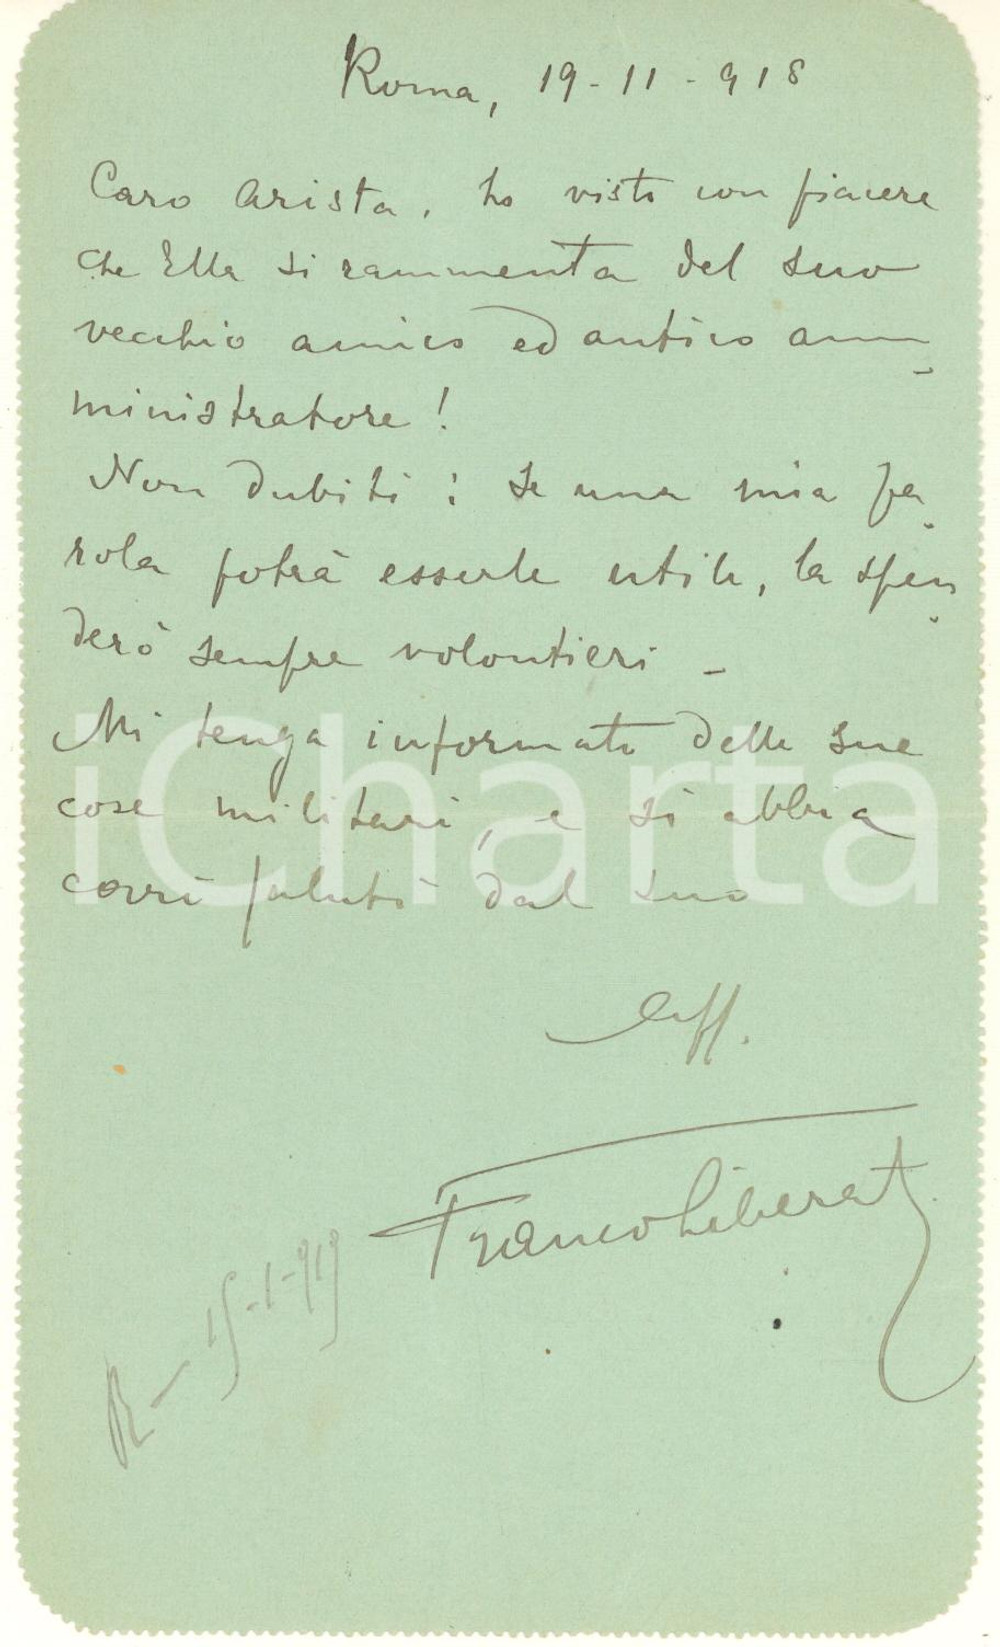 Roma, 19-11-918
Caro Arista, ho visto con piacere
che Ella si rammenta del suo
vecchio amico ed antico am-
ministratore!
Non dubiti: se una mia pa-
rola potrà esserle utile, la spen-
derò sempre volontieri -
Mi tenga informato delle sue
cose militari, e si abbia
corri saluti dal suo
aff.
Franco Liberati
R - 15-1-919
iCharta